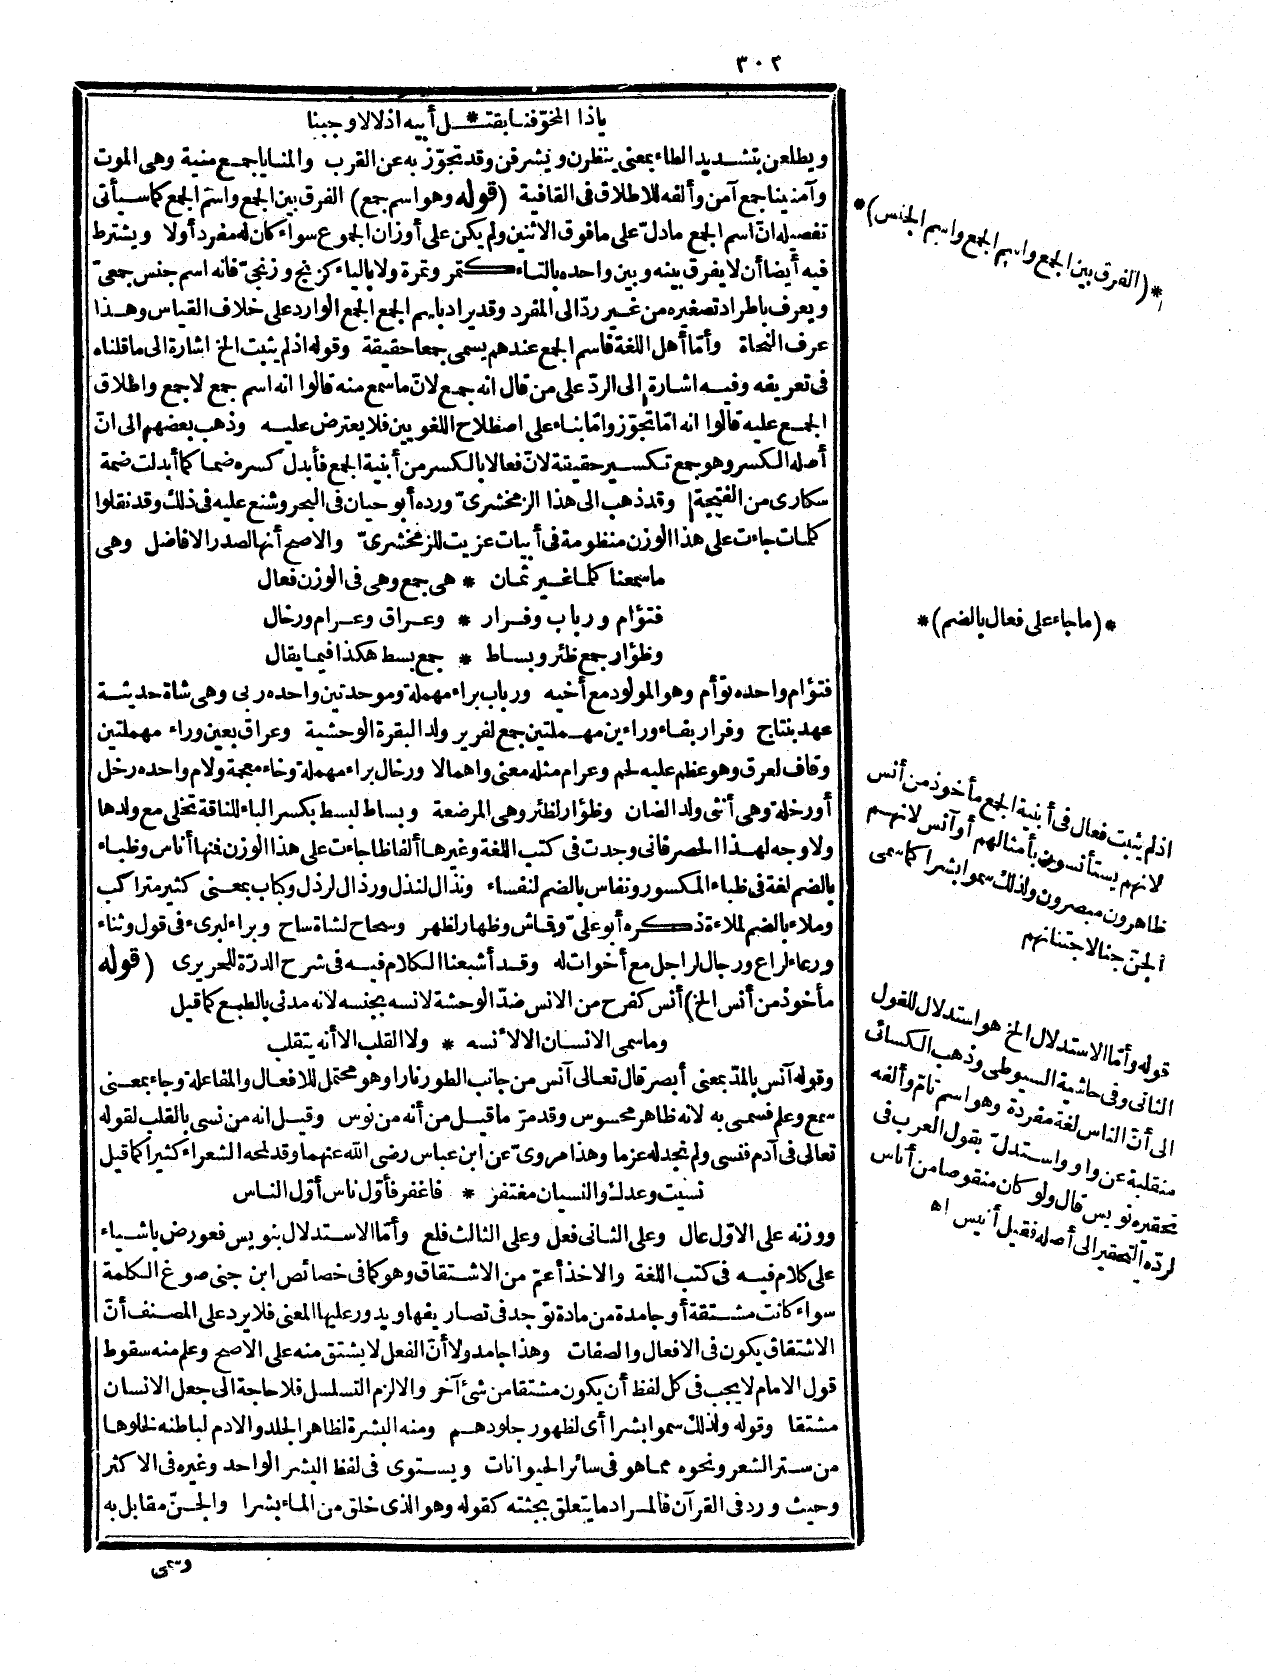 ٣٠٢
ياذا المخوّفنا بقتـ * ـل أبيه اذلالا وجبنا
ويطلعن بتشديد الطاء بمعنى ينظرن ويشرفن وقد تجوّز به عن القرب والمنايا جمع منية وهى الموت
وآمنينا جمع آمن وألفه للاطلاق فى القافية (قوله وهو اسم جمع) الفرق بين الجمع واسم الجمع كما سيأتى
تفصيله انّ اسم الجمع مادلّ على مافوق الاثنين ولم يكن على أوزان الجموع سواء كان له مفرد أولا ويشترط
فيه أيضا أن لا يفرق بينه وبين واحده بالتاء كتمر وتمرة ولا بالياء كزنج وزنجىّ فانه اسم جنس جمعىّ
ويعرف باطراد تصغيره من غير ردّ الى المفرد وقد يراد باسم الجمع الجمع الوارد على خلاف القياس وهذا
عرف النحاة وأمّا أهل اللغة فاسم الجمع عندهم يسمى جمعا حقيقة وقوله اذ لم يثبت الخ اشارة الى ما قلناه
فى تعريفه وفيه اشارة الى الردّ على من قال انه جمع لانّ ما سمع منه قالوا انه اسم جمع لا جمع واطلاق
الجمع عليه قالوا انه امّا تجوّز وامّا بناء على اصطلاح اللغويين فلا يعترض عليه وذهب بعضهم الى انّ
أصله الكسر وهو جمع تكسير حقيقة لانّ فعالا بالكسر من أبنية الجمع فأبدل كسره ضما كما أبدلت ضمة
سكارى من الفتحة وقد ذهب الى هذا الزمخشرىّ ورده أبو حيان فى البحر وشنع عليه فى ذلك وقد نقلوا
كلمات جاءت على هذا الوزن منظومة فى أبيات عزيت للزمخشرىّ والاصح أنها لصدر الافاضل وهى
ما سمعنا كلما غير ثمان * هى جمع وهى فى الوزن فعال
فتؤام ورباب وفرار * وعراق وعرام ورخال
وظؤار جمع ظئر وبساط * جمع بسط هكذا فيما يقال
فتؤام واحده توأم وهو المولود مع أخيه ورباب براء مهملة وموحدتين واحده ربى وهى شاة حديثة
عهد بنتاج وفرار بفاء وراءين مهملتين جمع لفرير ولد البقرة الوحشية وعراق بعين وراء مهملتين
وقاف لعرق وهو عظم عليه لحم وعرام مثله معنى واهمالا ورخال براء مهملة وخاء معجمة ولام واحده رخل
أو رخلة وهى أنثى ولد الضان وظؤار لظئر وهى المرضعة وبساط لبسط بكسر الباء للناقة تخلى مع ولدها
ولا وجه لهذا الحصر فانى وجدت فى كتب اللغة وغيرها ألفاظا جاءت على هذا الوزن فنها أناس وظباء
بالضم لغة فى ظباء المكسور ونفاس بالضم لنفساء ونذال لنذل ورذال لرذل وكباب بمعنى كثير متراكب
وملاء بالضم لملاءة ذكره أبو علىّ وقماش وظهار لظهر وسحاح لشاة ساح وبراء لبرىء فى قول وثناء
ورعاء لراع ورجال لراجل مع أخوات له وقد أشبعنا الكلام فيه فى شرح الدرّة للحريرى (قوله
مأخوذ من أنس الخ) أنس كفرح من الانس ضدّ الوحشة لانسه بجنسه لانه مدنى بالطبع كما قيل
وما سمى الانسان الا لأنسه * ولا القلب الا أنه يتقلب
وقوله آنس بالمدّ بمعنى أبصر قال تعالى آنس من جانب الطور نارا وهو محتمل للافعال والمفاعلة وجاء بمعنى
سمع وعلم فسمى به لانه ظاهر محسوس وقد مرّ ما قيل من أنه من نوس وقيل انه من نسى بالقلب لقوله
تعالى فى آدم فنسى ولم نجد له عزما وهذا مروىّ عن ابن عباس رضى الله عنهما وقد لمحه الشعراء كثيرا كما قيل
نسيت وعدك والنسيان مغتفر * فاغفر فأوّل ناس أوّل الناس
ووزنه على الاوّل عال وعلى الثانى فعل وعلى الثالث فلع وأمّا الاستدلال بنويس فعورض باشياء
على كلام فيه فى كتب اللغة والاخذ أعمّ من الاشتقاق وهو كما فى خصائص ابن جنى صوغ الكلمة
سواء كانت مشتقة أو جامدة من مادة توجد فى تصاريفها ويدور عليها المعنى فلا يرد على المصنف أنّ
الاشتقاق يكون فى الافعال والصفات وهذا جامد ولا أنّ الفعل لا يشتق منه على الاصح وعلم منه سقوط
قول الامام لا يجب فى كل لفظ أن يكون مشتقا من شئ آخر والا لزم التسلسل فلا حاجة الى جعل الانسان
مشتقا وقوله ولذلك سموا بشرا أى لظهور جلودهم ومنه البشرة لظاهر الجلد والادم لباطنه لخلوها
من ستر الشعر ونحوه مما هو فى سائر الحيوانات ويستوى فى لفظ البشر الواحد وغيره فى الاكثر
وحيث ورد فى القرآن فالمراد ما يتعلق بجثته كقوله وهو الذى خلق من الماء بشرا والجنّ مقابل به
وسمى
*(الفرق بين الجمع واسم الجمع واسم الجنس)*
*(ما جاء على فعال بالضم)*
اذ لم يثبت فعال فى أبنية الجمع مأخوذ من أنس
لانهم يستأنسون بأمثالهم أو آنس لانهم
ظاهرون مبصرون ولذلك سموا بشرا كما سمى
الجنّ جنا لاجتنانهم
قوله وأمّا الاستدلال الخ هو استدلال للقول
الثانى وفى حاشية السيوطى وذهب الكسائى
الى أنّ الناس لغة مفردة وهو اسم تامّ وألفه
منقلبة عن واو واستدلّ بقول العرب فى
تحقيره نويس قال ولو كان منقوصا من أناس
لردّه التحقير الى أصله فقيل أنيس اه